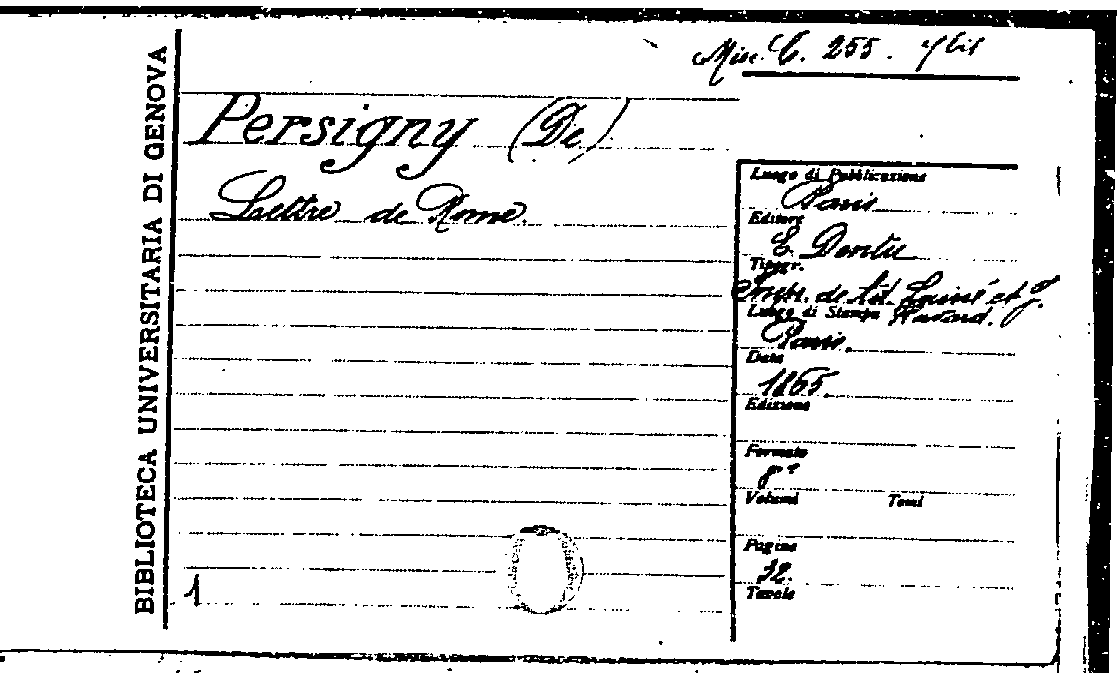 BIBLIOTECA UNIVERSITARIA DI GENOVA
Misc. C. 255.
Persigny (De)
Lettre de Rome.
Luogo di Pubblicazione
Paris
Editore
E. Dentu
Tipogr.
Impr. de Ad. Lainé et J.
Havard.
Luogo di Stampa
Paris.
Data
1865.
Edizione
Formato
8°
Volumi Tomi
Pagine
32.
Tavole
1